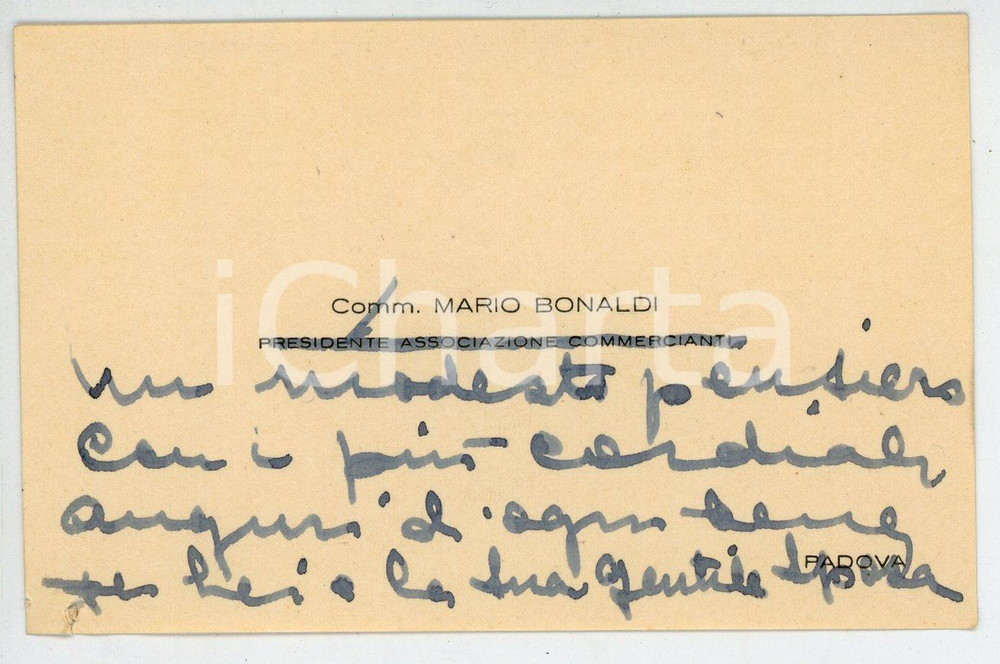 iCharta
Comm. MARIO BONALDI
PRESIDENTE ASSOCIAZIONE COMMERCIANTI
un modesto pensiero
con i più cordiali
auguri d'ogni bene
PADOVA
per Lei e la Sua gentile Sposa